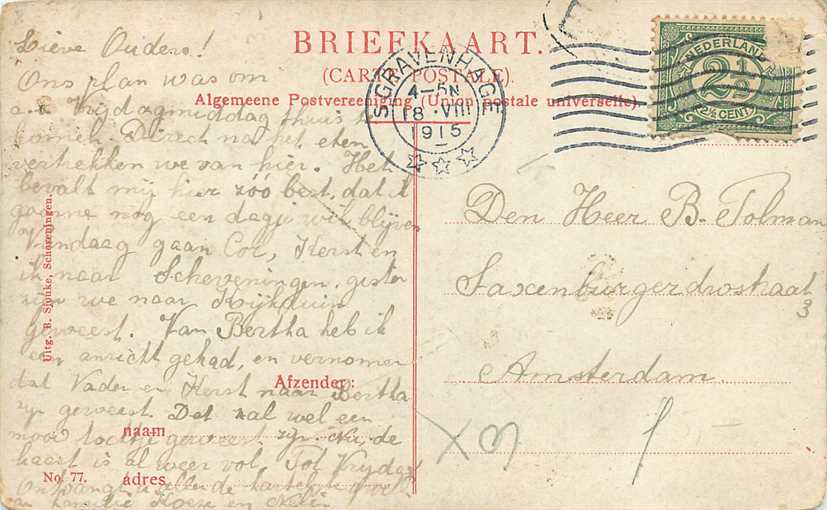 BRIEFKAART.
(CARTE POSTALE).
Algemeene Postvereeniging (Union postale universelle).
'S GRAVENHAGE
4-5N
18 VIII
1915
NEDERLAND
2½
2½ CENT
Lieve Ouders!
Ons plan was om
a.s. Vrijdagmiddag thuis te
komen. Direct na het eten
vertrekken we van hier. Het
bevalt mij hier zóó best, dat ik
gaarne nog een dagje wil blijven
Vandaag gaan Cor, Kerst en
ik naar Scheveningen, gister
zijn we naar Kijkduin
geweest. Van Bertha heb ik
een ansicht gehad, en vernomen
dat Vader en Kerst naar Bertha
zijn geweest. Dat zal wel een
mooi tochtje geweest zijn. Nu, de
kaart is al weer vol. Tot Vrijdag
Ontvangt de hartelijke
familie en
Den Heer B. Tolman
Saxenburgerdwstraat
3
Amsterdam.
Afzender:
naam
adres
No. 77.
Uitg. R. Sjouke, Scheveningen.